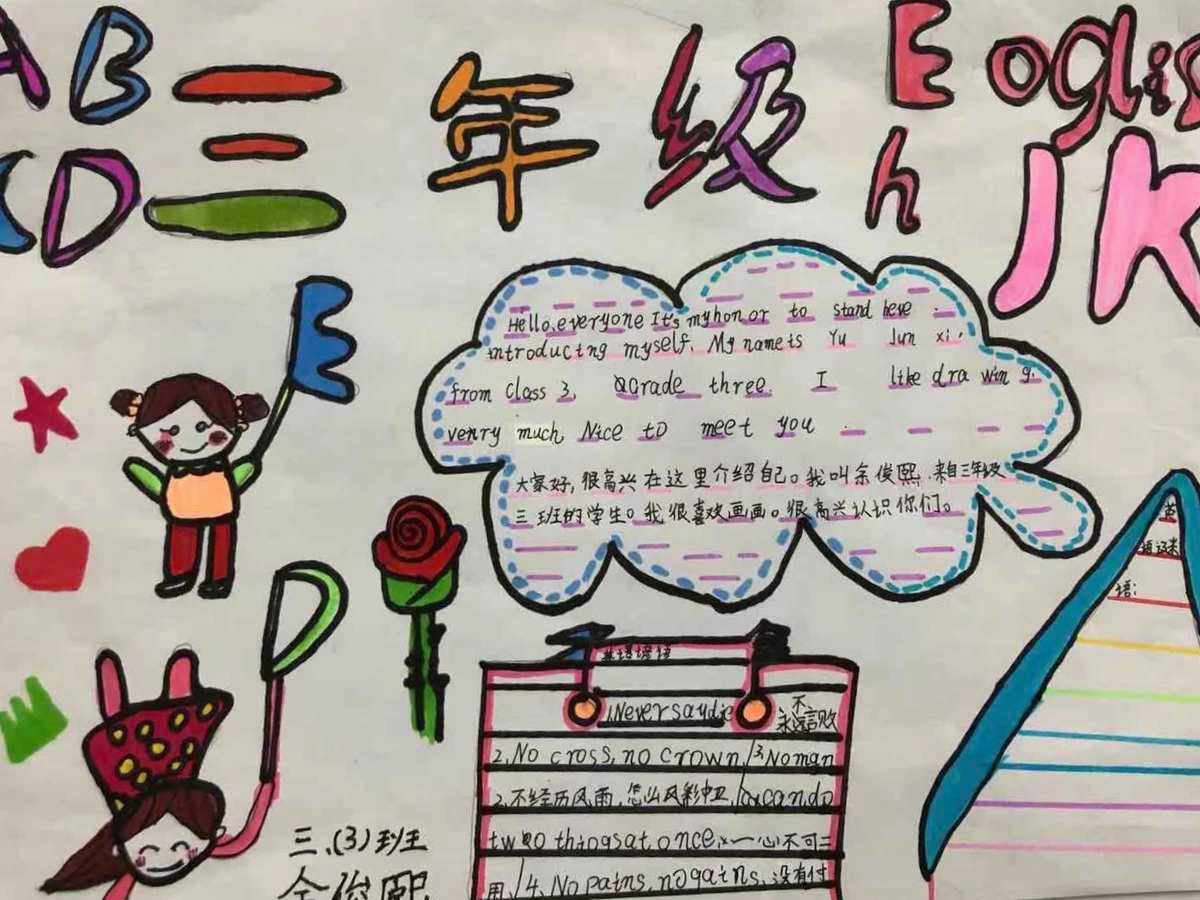 AB 三年级 English
CD JK
Hello, everyone It's my honor to stand here
introducing myself. My name is Yu Jun xi.
from class 3, Grade three. I like drawing.
venry much, Nice to meet you
大家好,很高兴在这里介绍自己。我叫余俊熙.来自三年级
三班的学生。我很喜欢画画。很高兴认识你们。
E
D
语:
1.Never say die 永不言败
2. No cross, no crown. 3. No man
2.不经历风雨,怎么 can do
two things at once. 一心不可二
用. 4. No pains, no gains. 没有付
三.(3)班
余俊熙